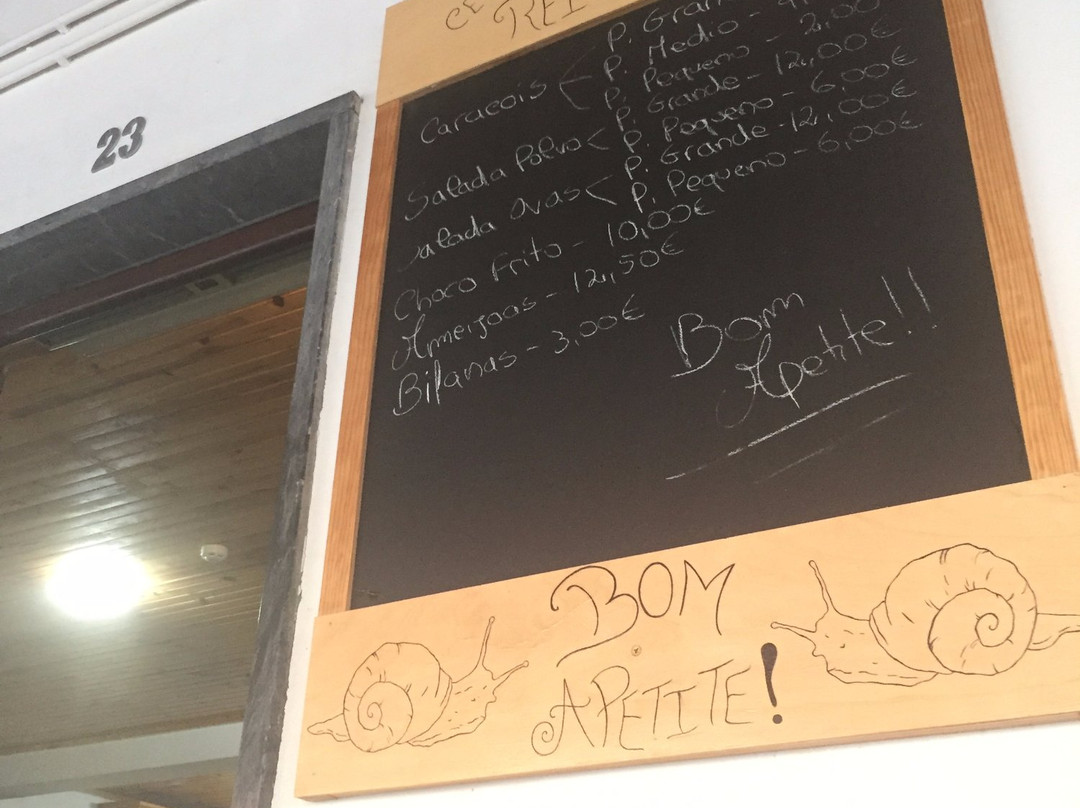 23
REI
P. Gran
Caracois P. Medio -
P. Pequeno - 2,00
Salada Polvo P. Grande - 12,00€
P. Pequeno - 6,00€
salada Ovas P. Grande - 12,00€
P. Pequeno - 6,00€
Choco Frito - 10,00€
Ameijoas - 12,50€
Bifanas - 3,00€
Bom
Apetite!!
BOM
APETITE!